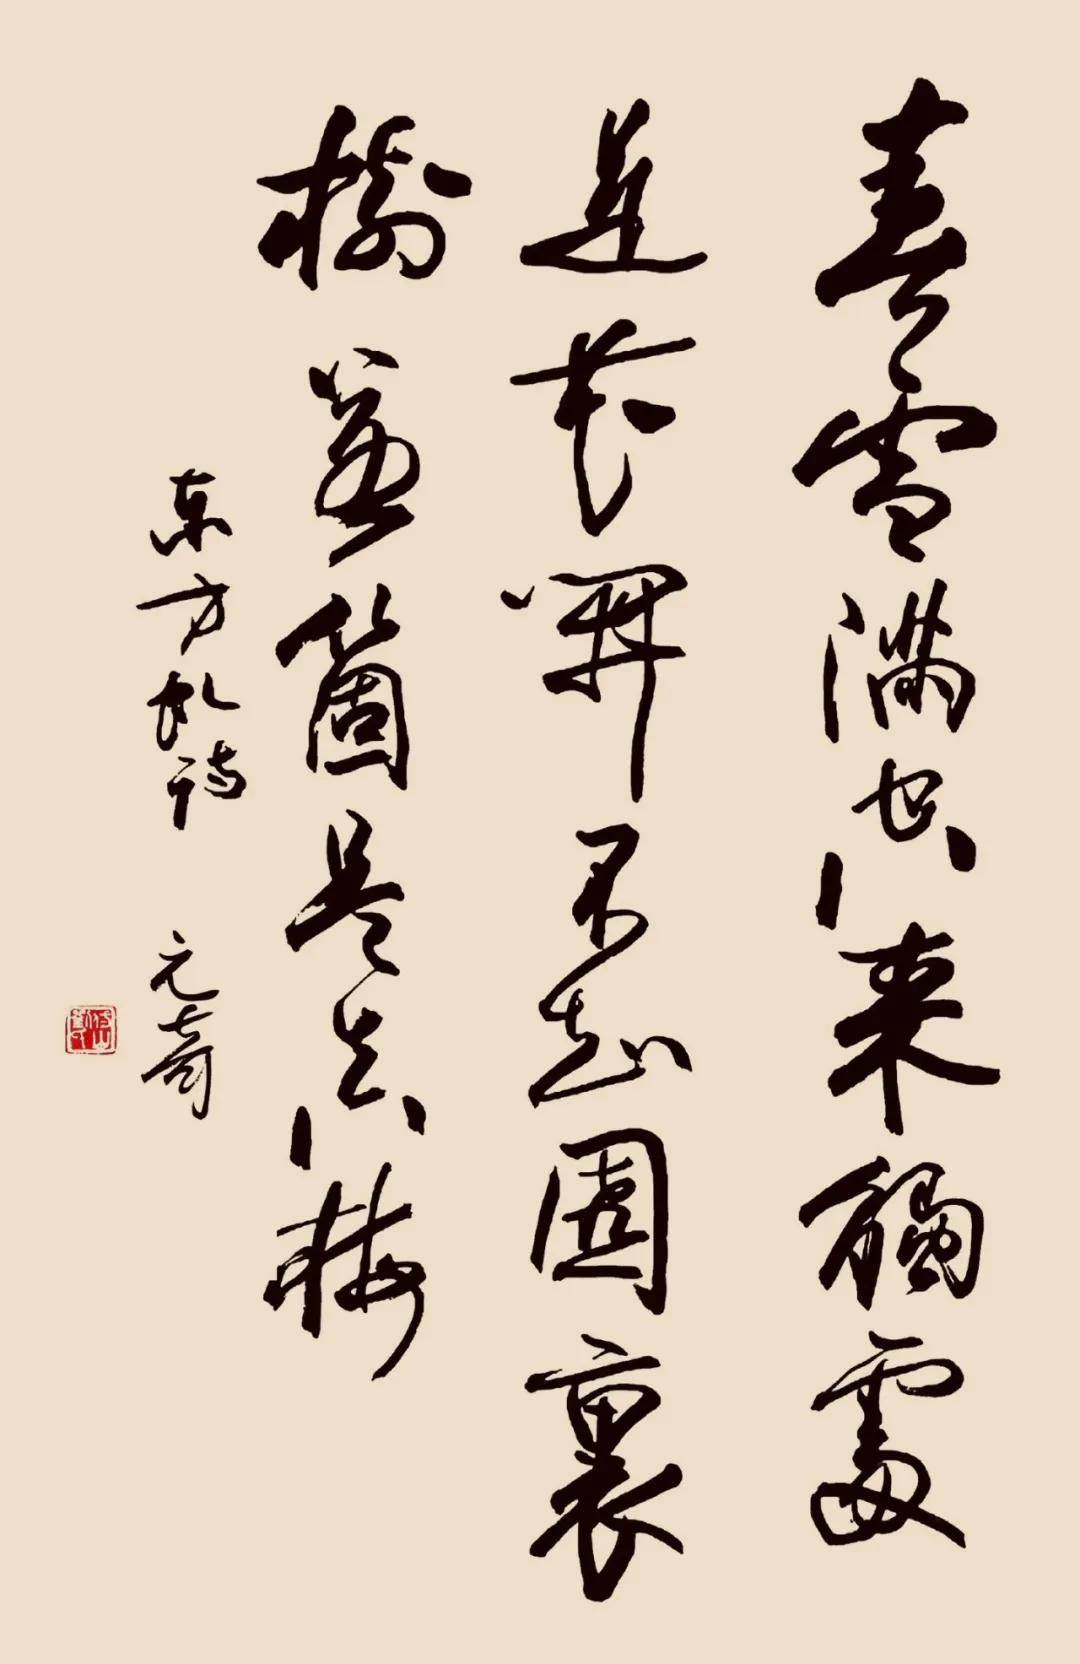 春雪滿空來觸處
是花開不知園裏
樹若箇是真梅
東方虬詩 元奇